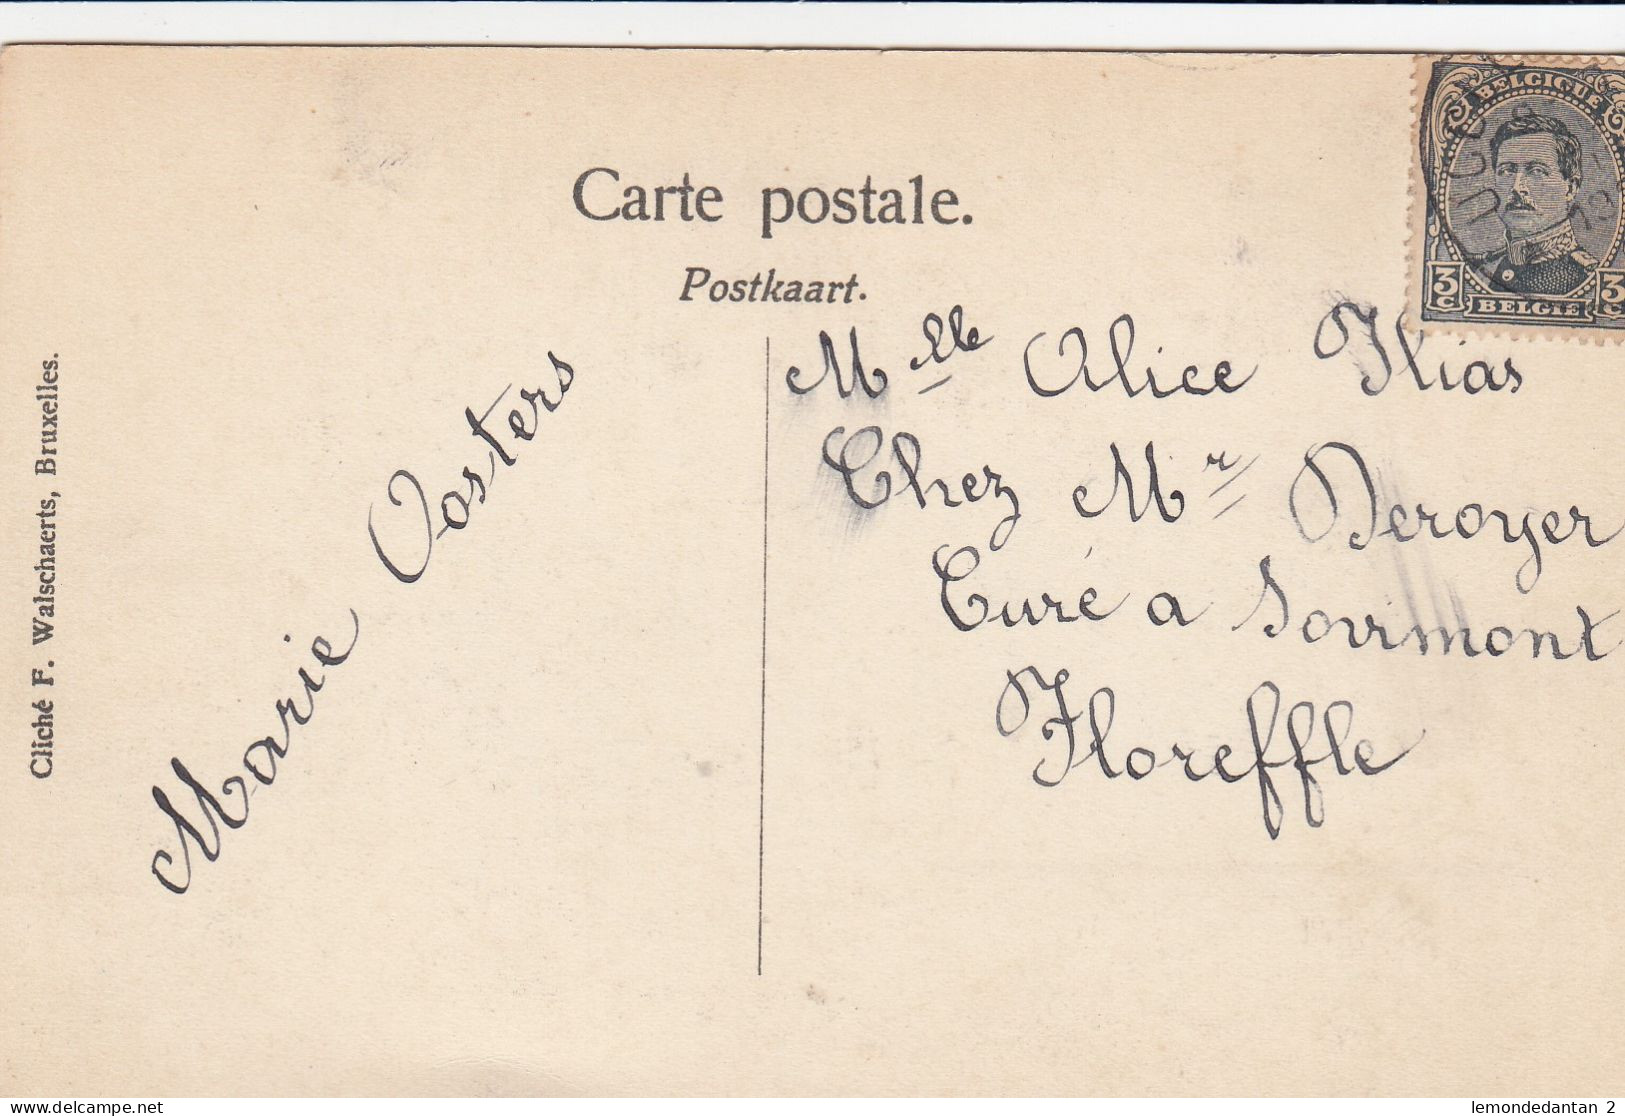 BELGIQUE
3c 3c
BELGIE
Carte postale.
Postkaart.
Cliché F. Walschaerts, Bruxelles.
Marie Oosters
Mlle Alice Ilias
Chez Mr Deroyer
Curé a Sovimont
Floreffle
lemondedantan 2